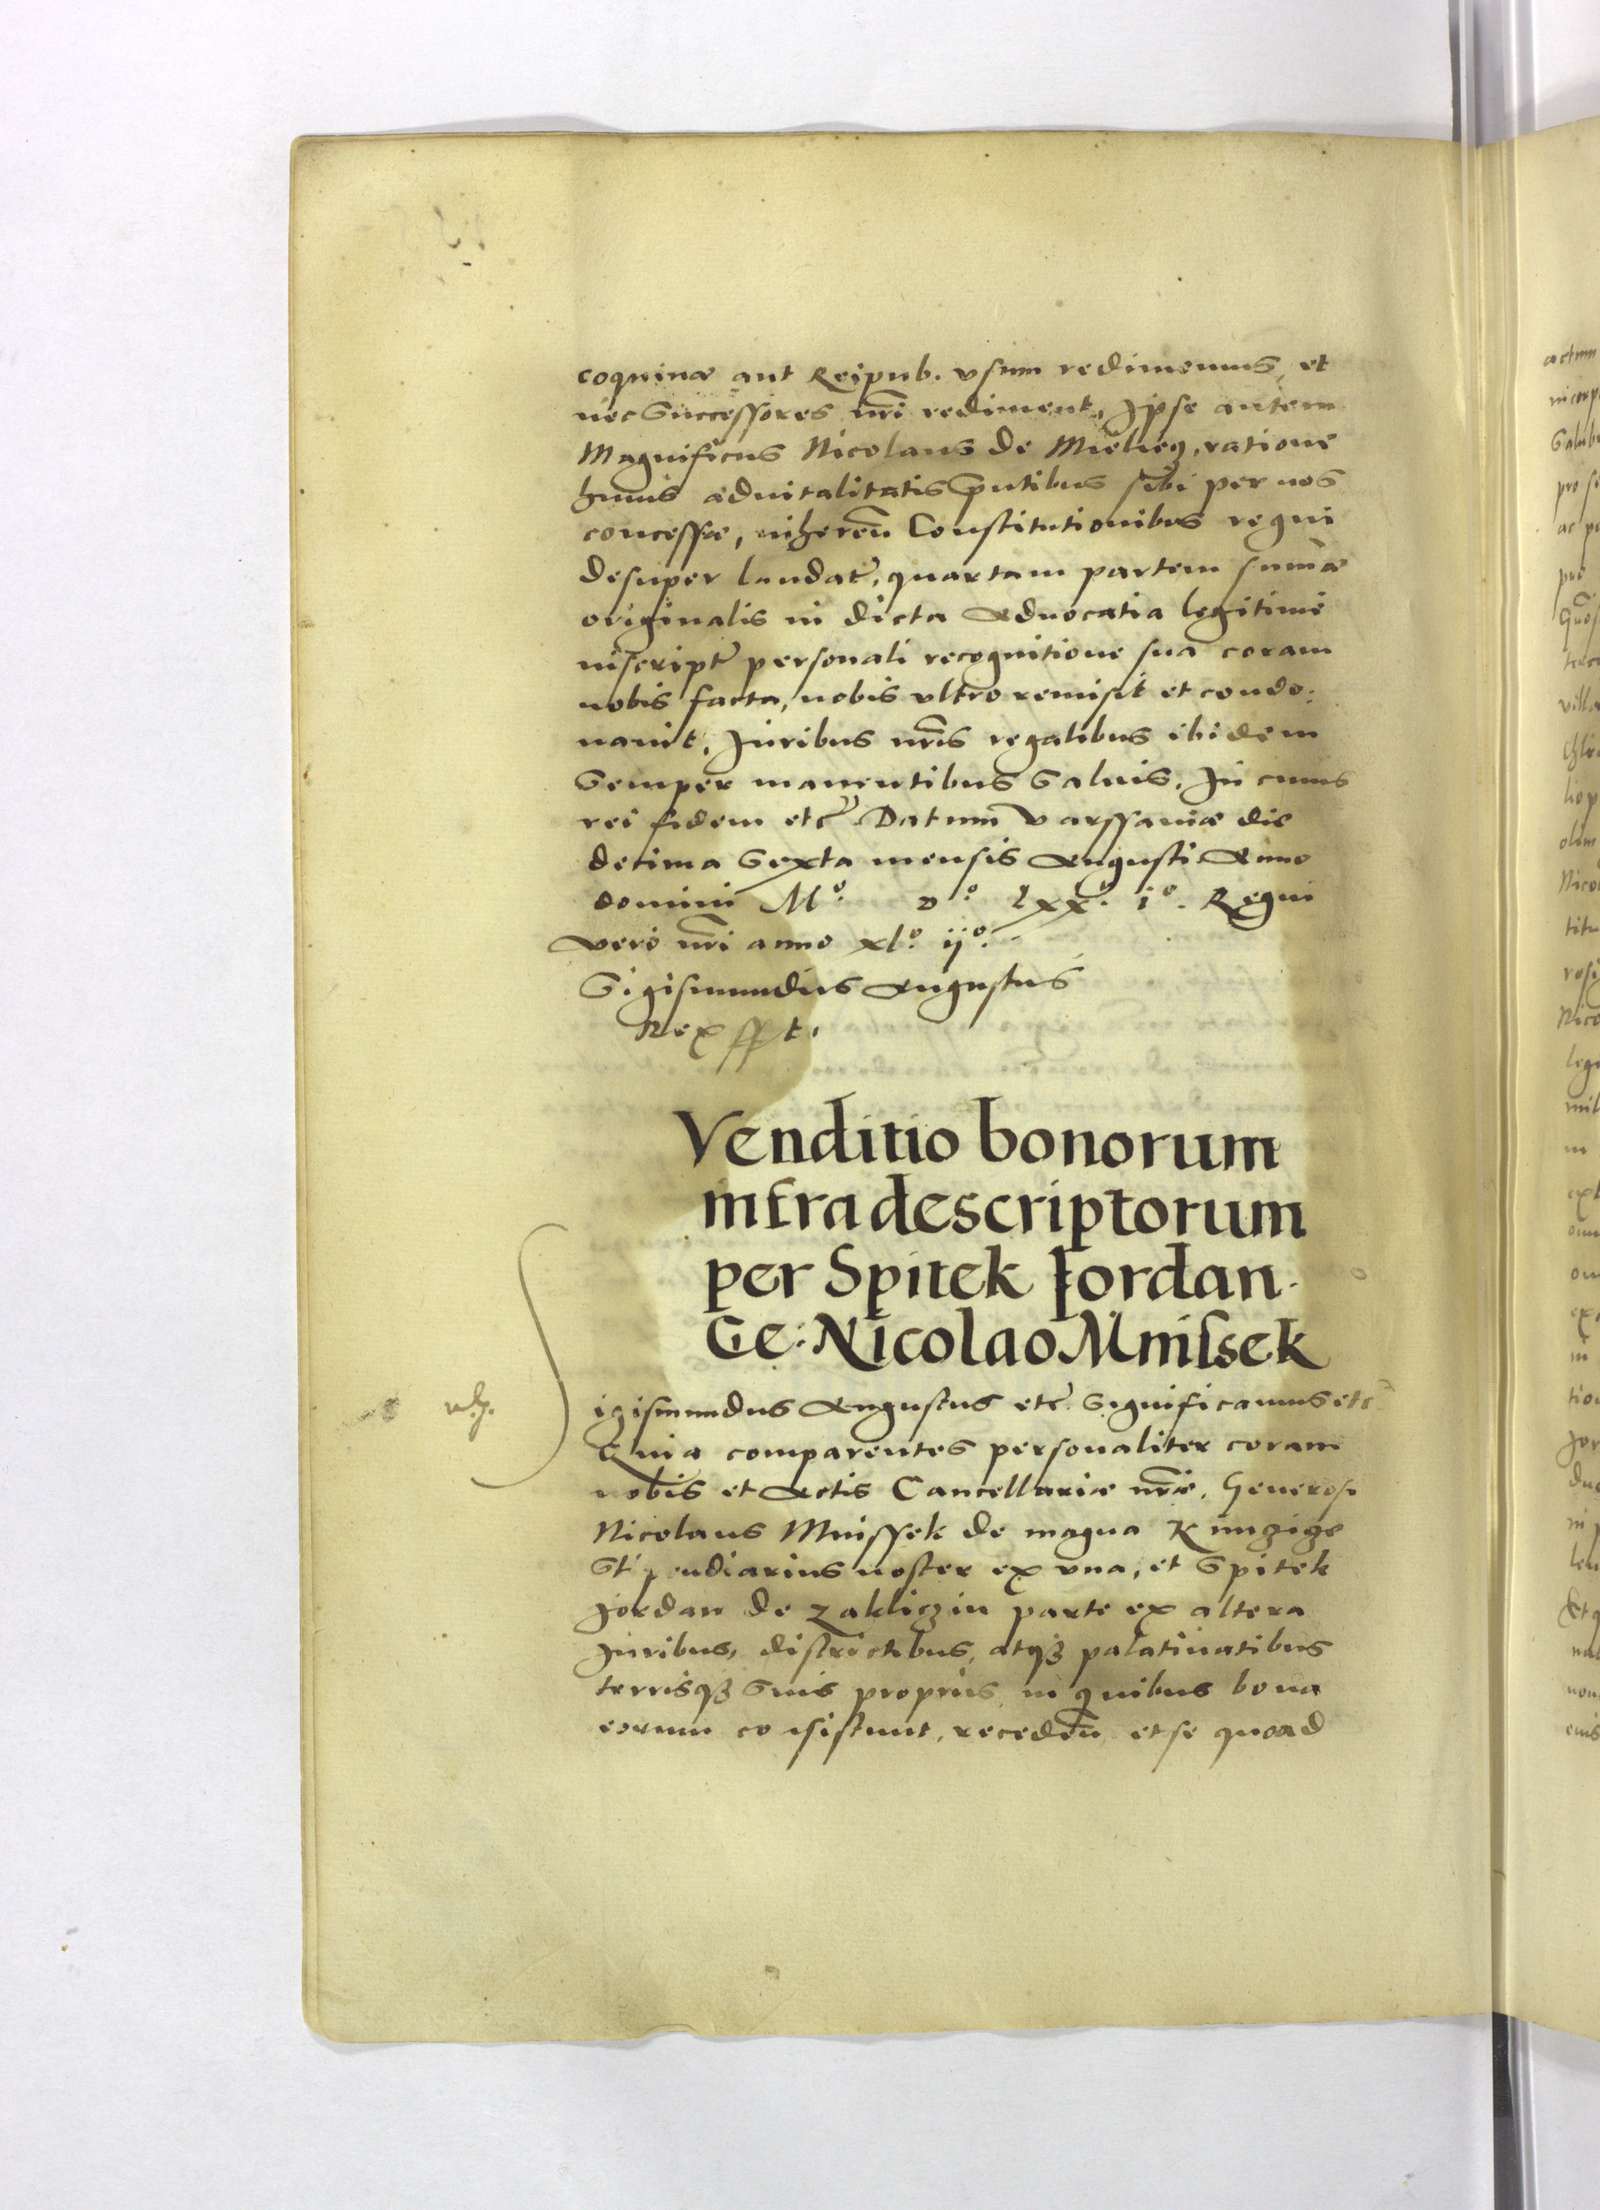 coquinæ aut Reipub. vsum redimemus, et
nec Successores nr̃i rediment. Ipse autem
Magnificus Nicolaus de Mielecz, ratione
huius aduitalitatis p̃ntibus sibi per nos
concessæ, inheren̄ Constitutionibus regni
desuper laudat̃, quartam partem sum̃æ
originalis in dicta Aduocatia legitime
inscript̃ personali recognitione sua coram
nobis facta, nobis vltro remisit et condo:
nauit, Iuribus nr̃is regalibus ibidem
Semper manentibus Saluis. In cuius
rei fidem etc̃ Datum Varssauiæ die
decima Sexta mensis Augusti Anno
domini Mº. Dº. lxxº. iº. Regni
vero nr̃i anno xlº. ijº.
Sigismundus Augustus
Rex sst.
Venditio bonorum
infra descriptorum
per Spitek Jordan.
Ge: Nicolao Mnissek
Sigismundus Augustus etc̃ Significamus etc̃
Quia comparentes personaliter coram
nobis et Actis Cancellariæ nr̃æ, Generosi
Nicolaus Mnissek de magna Kunzicze
Stipendiarius noster ex vna, et Spitek
Jordan de Zakliczin parte ex altera
Iuribus, districtibus, atq3 palatinatibus
terrisq3 Suis proprijs in quibus bona
eorum consistunt, receden̄ et se quoad